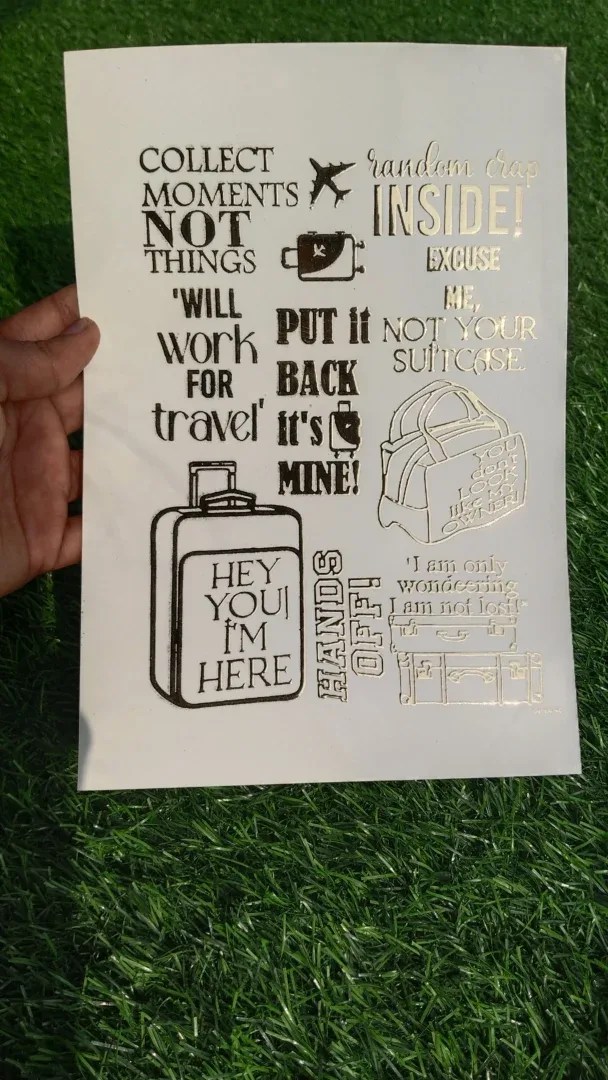 COLLECT
MOMENTS
NOT
THINGS
random crap
INSIDE!
EXCUSE
ME,
NOT YOUR
SUITCASE.
'WILL
work
FOR
travel'
PUT it
BACK
it's
MINE!
YOU
DON'T
LOOK
LIKE MY
OWNER!
HEY
YOU|
I'M
HERE
HANDS
OFF!
'I am only
wondeering
I am not lost!"